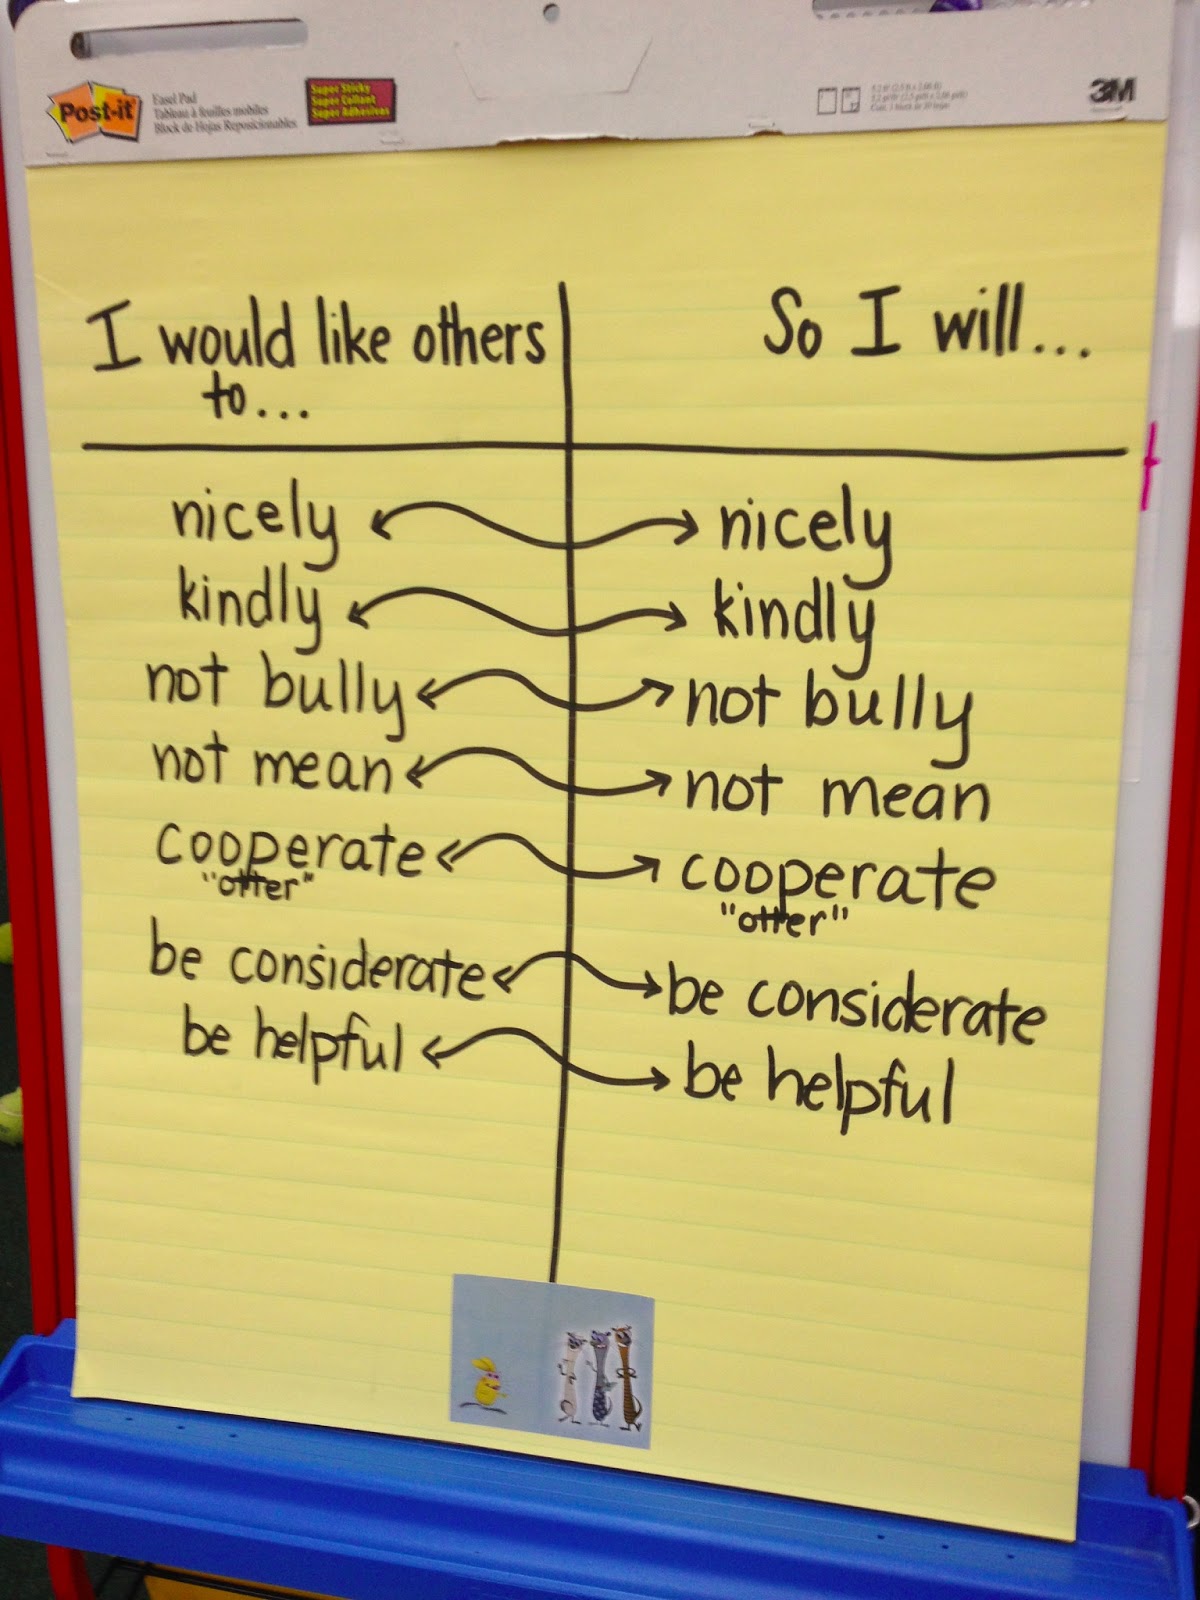 Post-it
Easel Pad
Tableau à feuilles mobiles
Block de Hojas Reposicionables
Super Sticky
Super Collant
Super Adhesivos
3M
I would like others
to...
So I will...
nicely nicely
kindly kindly
not bully not bully
not mean not mean
cooperate cooperate
"otter" "otter"
be considerate be considerate
be helpful be helpful